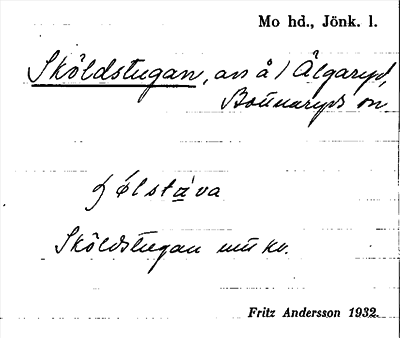 Mo hd., Jönk. l.
Sköldstugan, avs å / Älgaryd,
Bottnaryds sn
ʃ ǿlstàva
Sköldstugan
Fritz Andersson 1932.